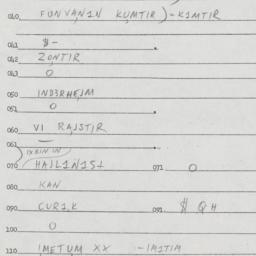 010. FUNVANIN KUMTIR)-KIMTIR
041 $-
042 ZONTIR
043 O
050 IND3RHEJM
051 O
060 VI RAJSTIR
061 —
070 HAJLINIST 071 O
080. KAN
090. CURIK 091. $ QH
100 O
110. IMETUM XX -IMITIM